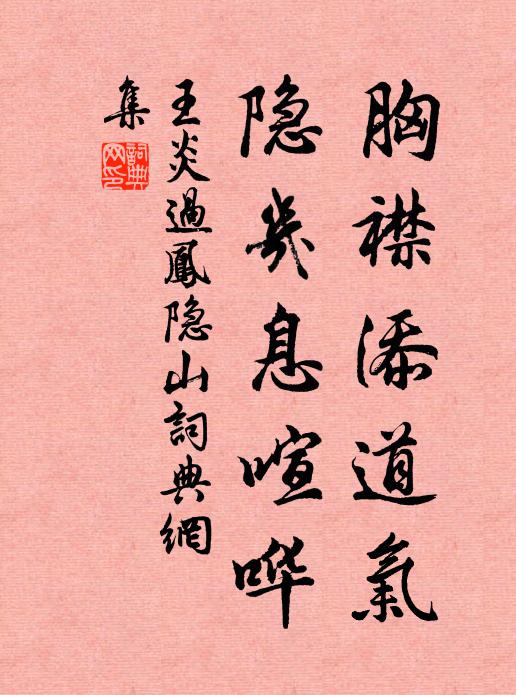 胸襟添道氣
隐幾息喧哗
王炎過鳳隐山詞典網
集
詞典網印